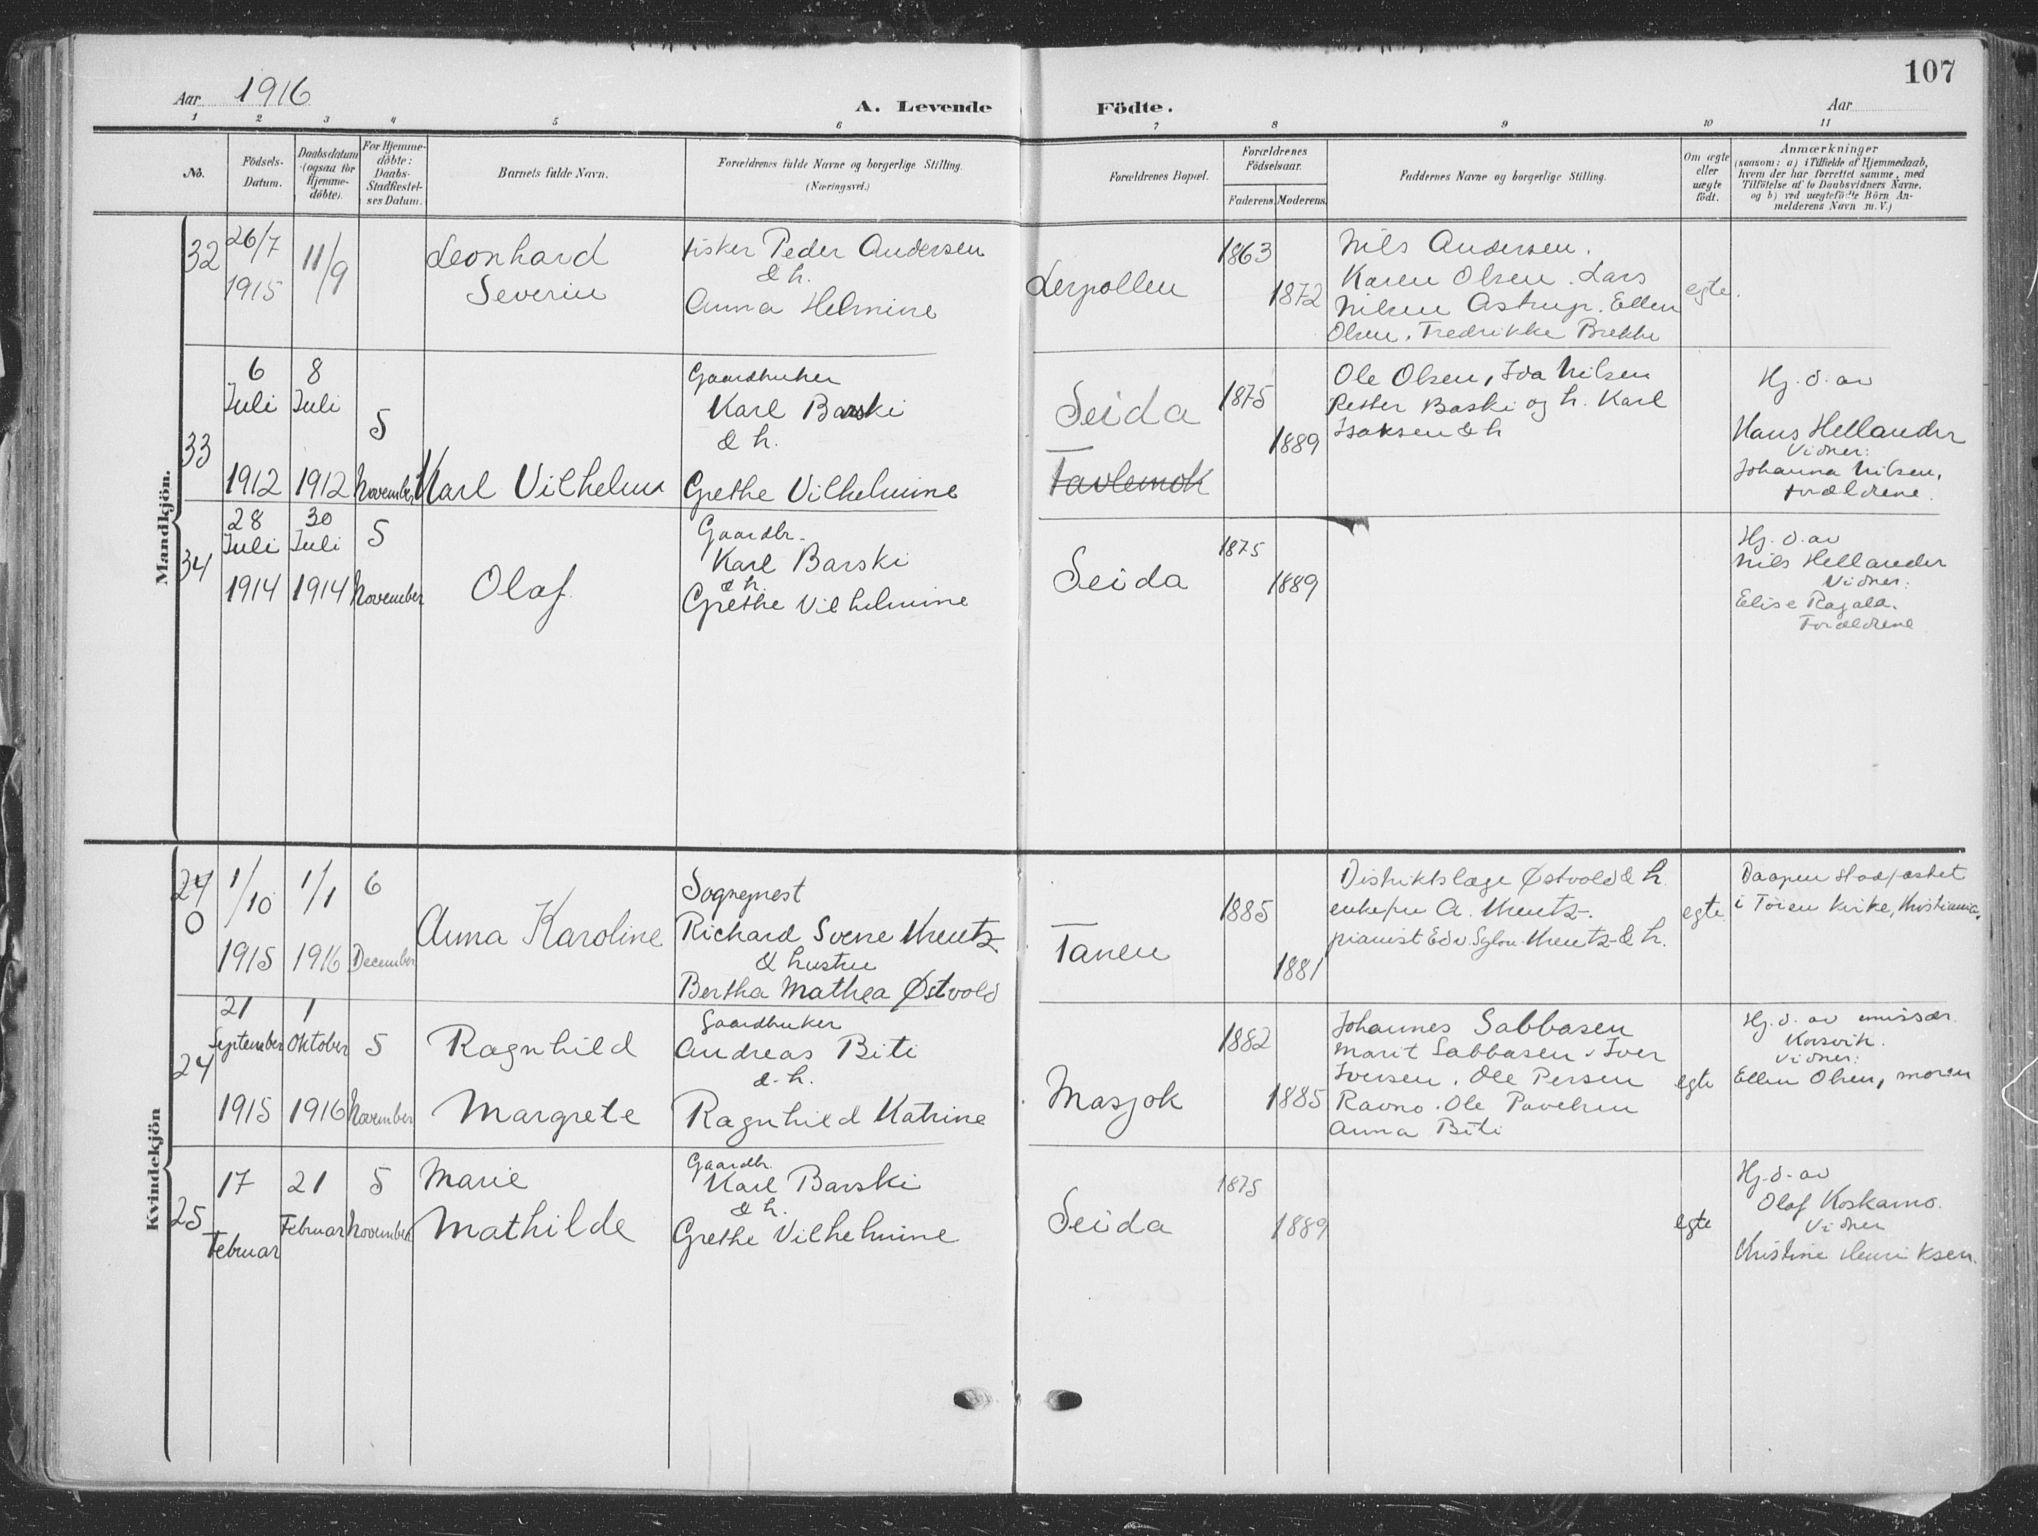 107
Aar 1916
A. Levende Födte.
Aar
1 2 3 4 5 6 7 8 9 10 11
No.
Födsels-
Datum.
Daabsdatum
(ogsaa for
Hjemme-
döbte).
For Hjemme-
döbte:
Daabs-
Stadfæstel-
ses Datum.
Barnets fulde Navn.
Forældrenes fulde Navne og borgerlige Stilling.
(Næringsvei.)
Forældrenes Bopæl.
Forældrenes
Födselsaar.
Faderens. Moderens.
Faddernes Navne og borgerlige Stilling.
Om ægte
eller
uægte
födt.
Anmærkninger
(saasom: a) i Tilfælde af Hjemmedaab,
hvem der har forrettet samme, med
Tilföielse af to Daabsvidners Navne,
og b) ved uægtefödte Börn An-
melderens Navn m. V.)
Mandkjön.
32
26/7
1915
11/9
Leonhard
Severin
Fisker Peder Andersen
& h.
Anna Helmine
Lerpollen
1863
1872
Nils Andersen.
Karen Olsen. Lars
Nilsen Astrup. Ellen
Olsen. Fredrikke Brekke
egte.
33
6
Juli
1912
8
Juli
1912
5
November
Karl Vilhelm
Gaardbruker
Karl Barski
& h.
Grethe Vilhelmine
Seida
Tavlemok
1875
1889
Ole Olsen, Iva Nilsen
Petter Baski og h. Karl
Isaksen & h
Hj. d. av
Hans Hellander
Vidner:
Johanna Nilsen,
Forældrene.
34
28
Juli
1914
30
Juli
1914
5
November
Olaf
Gaardbr.
Karl Barski
& h.
Grethe Vilhelmine
Seida
1875
1889
Hj. d. av
Nils Hellander
Vidner:
Elise Ragala.
Forældrene
Kvindekjön
0
1/10
1915
1/1
1916
6
December
Anna Karoline
Sogneprest
Richard Svene Kreutz
& hustru
Bertha Mathea Østvold
Tanen
1885
1881
Distriktslæge Østvold & h.
enkefru A. Kreutz.
pianist Edv. Sylou-Kreutz & h.
egte.
Daapen stadfæstet
i Töien Kirke, Kristiania,
24
21
September
1915
1
Oktober
1916
5
November
Ragnhild
Margrete
Gaardbruker
Andreas Biti
& h.
Ragnhild Katrine
Masjok
1882
1885
Johannes Sabbasen
Marit Sabbasen. Iver
Iversen. Ole Persen
Ravno. Ole Pavelsen
Anna Biti
egte
Hj. d. av emissær.
Korsvik.
Vidner:
Ellen Olsen, moren
25
17
Februar
21
Februar
5
November
Marie
Mathilde
Gaardbr.
Karl Barski
& h.
Grethe Vilhelmine
Seida
1875
1889
egte
Hj. d. av
Olaf Koskamo.
Vidner
Kristine Henriksen.